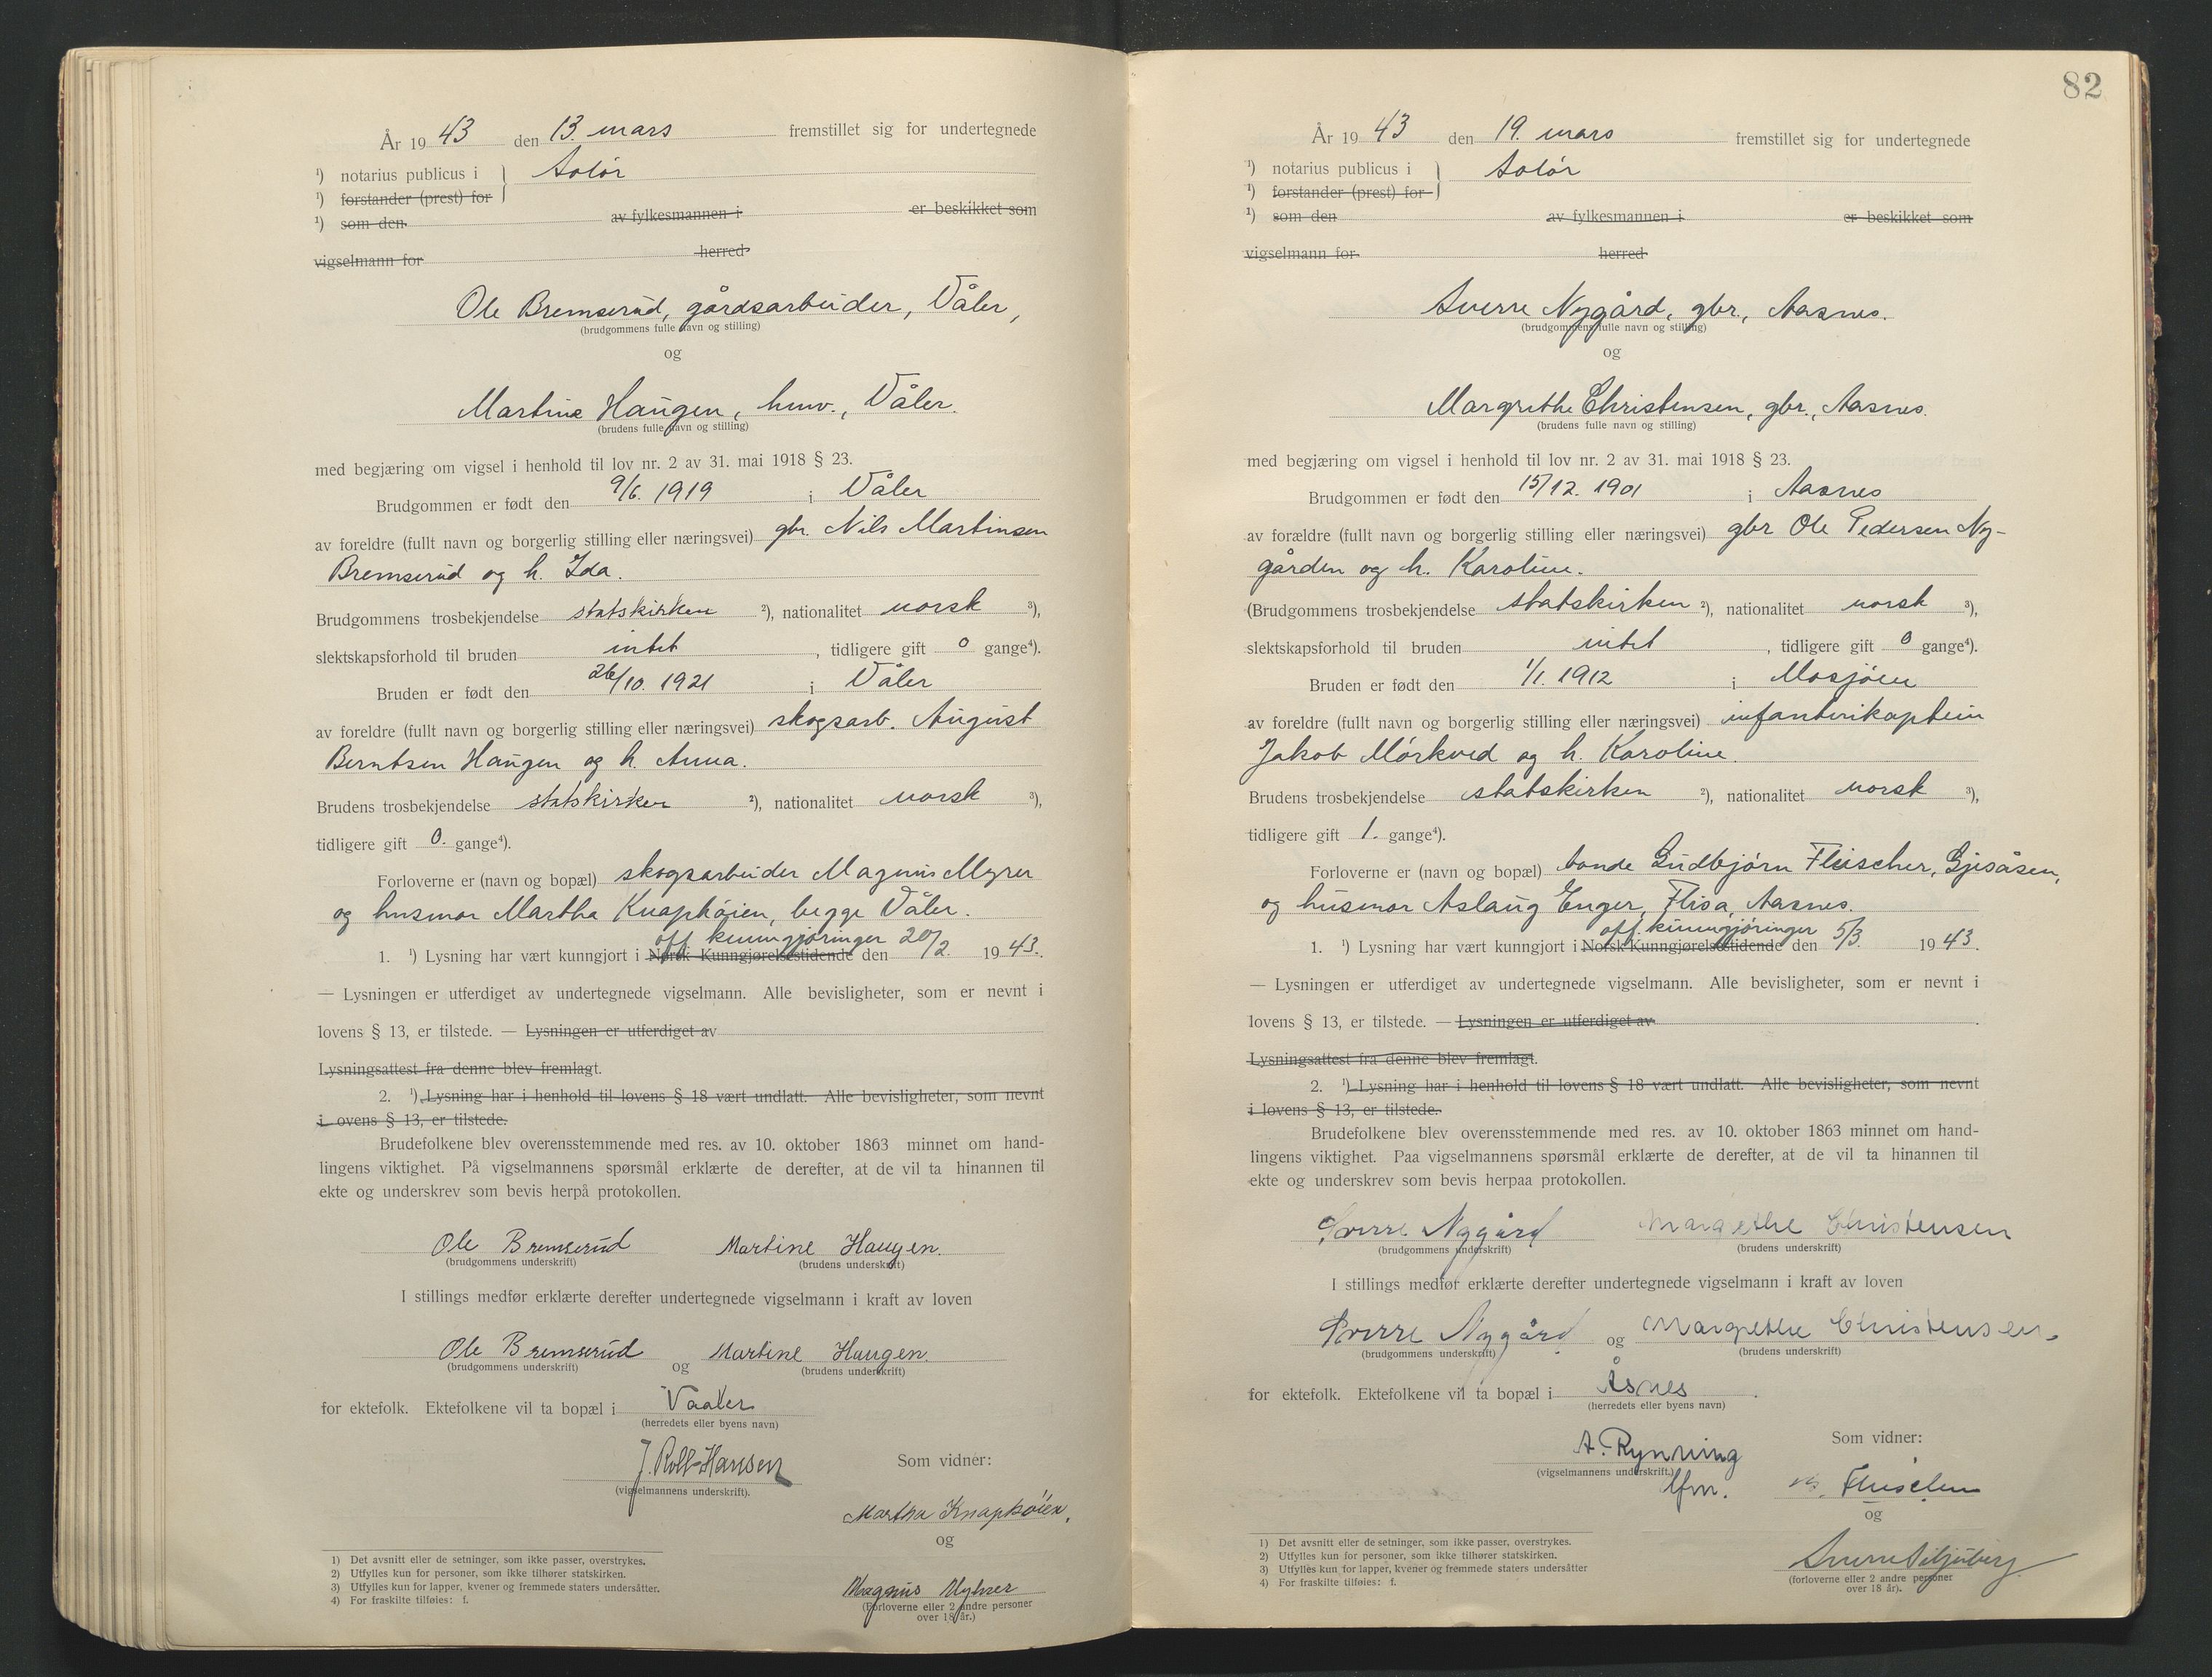 År 1943 den 13. mars fremstillet sig for undertegnede
¹) notarius publicus i } Solør
¹) forstander (prest) for
¹) som den av fylkesmannen i er beskikket som
vigselmann for herred
Ole Bremserud, gårdsarbeider, Våler,
(brudgommens fulle navn og stilling)
og
Martine Haugen, hmv., Våler.
(brudens fulle navn og stilling)
med begjæring om vigsel i henhold til lov nr. 2 av 31. mai 1918 § 23.
Brudgommen er født den 9/6. 1919 i Våler
av foreldre (fullt navn og borgerlig stilling eller næringsvei) gbr. Nils Martinsen
Bremserud og h. Ida.
Brudgommens trosbekjendelse statskirken ²), nationalitet norsk ³),
slektskapsforhold til bruden intet, tidligere gift 0 gange⁴).
Bruden er født den 26/10. 1921 i Våler
av foreldre (fullt navn og borgerlig stilling eller næringsvei) skogsarb. August
Berntsen Haugen og h. Anna.
Brudens trosbekjendelse statskirken ²), nationalitet norsk ³),
tidligere gift 0. gange⁴).
Forloverne er (navn og bopæl) skogsarbeider Magnus Myrer
og husmor Martha Knaphøien, begge Våler.
off. kunngjøringer
1. ¹) Lysning har vært kunngjort i Norsk Kunngjørelsestidende den 20/2. 1943.
— Lysningen er utferdiget av undertegnede vigselmann. Alle bevisligheter, som er nevnt i
lovens § 13, er tilstede. — Lysningen er utferdiget av
Lysningsattest fra denne blev fremlagt.
2. ¹) Lysning har i henhold til lovens § 18 vært undlatt. Alle bevisligheter, som nevnt
i ovens § 13, er tilstede.
Brudefolkene blev overensstemmende med res. av 10. oktober 1863 minnet om hand-
lingens viktighet. På vigselmannens spørsmål erklærte de derefter, at de vil ta hinannen til
ekte og underskrev som bevis herpå protokollen.
Ole Bremserud Martine Haugen.
(brudgommens underskrift) (brudens underskrift)
I stillings medfør erklærte derefter undertegnede vigselmann i kraft av loven
Ole Bremserud og Martine Haugen.
(brudgommens underskrift) (brudens underskrift)
for ektefolk. Ektefolkene vil ta bopæl i Vaaler
(herredets eller byens navn)
J. Roll-Hansen
(vigselmannens underskrift).
Som vidner:
Martha Knaphøien.
og
Magnus Myhrer
(Forloverne eller 2 andre personer
over 18 år.)
1) Det avsnitt eller de setninger, som ikke passer, overstrykes.
2) Utfylles kun for personer, som ikke tilhører statskirken.
3) Utfylles kun for lapper, kvener og fremmede staters undersåtter.
4) For fraskilte tilføies: f.
82
År 1943 den 19. mars fremstillet sig for undertegnede
¹) notarius publicus i } Solør
¹) forstander (prest) for
¹) som den av fylkesmannen i er beskikket som
vigselmann for herred
Sverre Nygård, gbr., Aasnes.
(brudgommens fulle navn og stilling)
og
Margrethe Christensen, gbr., Aasnes.
(brudens fulle navn og stilling)
med begjæring om vigsel i henhold til lov nr. 2 av 31. mai 1918 § 23.
Brudgommen er født den 15/12. 1901 i Aasnes
av forældre (fullt navn og borgerlig stilling eller næringsvei) gbr Ole Pedersen Ny-
gården og h. Karoline.
(Brudgommens trosbekjendelse statskirken ²), nationalitet norsk ³),
slektskapsforhold til bruden intet, tidligere gift 0 gange⁴).
Bruden er født den 1/1. 1912 i Mosjøen
av foreldre (fullt navn og borgerlig stilling eller næringsvei) infanterikaptein
Jakob Mørkved og h. Karoline.
Brudens trosbekjendelse statskirken ²), nationalitet norsk ³),
tidligere gift 1. gange⁴).
Forloverne er (navn og bopæl) bonde Gudbjørn Fleischer, Gjesåsen,
og husmor Aslaug Enger, Flisa, Aasnes.
off. kunngjøringer
1. ¹) Lysning har vært kunngjort i Norsk Kunngjørelsestidende den 5/3. 1943.
— Lysningen er utferdiget av undertegnede vigselmann. Alle bevisligheter, som er nevnt i
lovens § 13, er tilstede. — Lysningen er utferdiget av
Lysningsattest fra denne blev fremlagt.
2. ¹) Lysning har i henhold til lovens § 18 vært undlatt. Alle bevisligheter, som nevnt
i lovens § 13, er tilstede.
Brudefolkene blev overensstemmende med res. av 10. oktober 1863 minnet om hand-
lingens viktighet. Paa vigselmannens spørsmål erklærte de derefter, at de vil ta hinannen til
ekte og underskrev som bevis herpaa protokollen.
Sverre Nygård Margrethe Christensen
(brudgommens underskrift) (brudens underskrift)
I stillings medfør erklærte derefter undertegnede vigselmann i kraft av loven
Sverre Nygård og Margrethe Christensen
(brudgommens underskrift) (brudens underskrift)
for ektefolk. Ektefolkene vil ta bopæl i Åsnes.
(herredets eller byens navn)
A. Rynning
(vigselmannens underskrift.)
Som vidner:
Fleischer
og
Sverre
(forloverne eller 2 andre personer
over 18 år).
1) Det avsnitt eller de setninger, som ikke passer, overstrykes.
2) Utfylles kun for personer, som ikke tilhører statskirken.
3) Utfylles kun for lapper, kvener og fremmede staters undersåtter
4) For fraskilte tilføies: f.